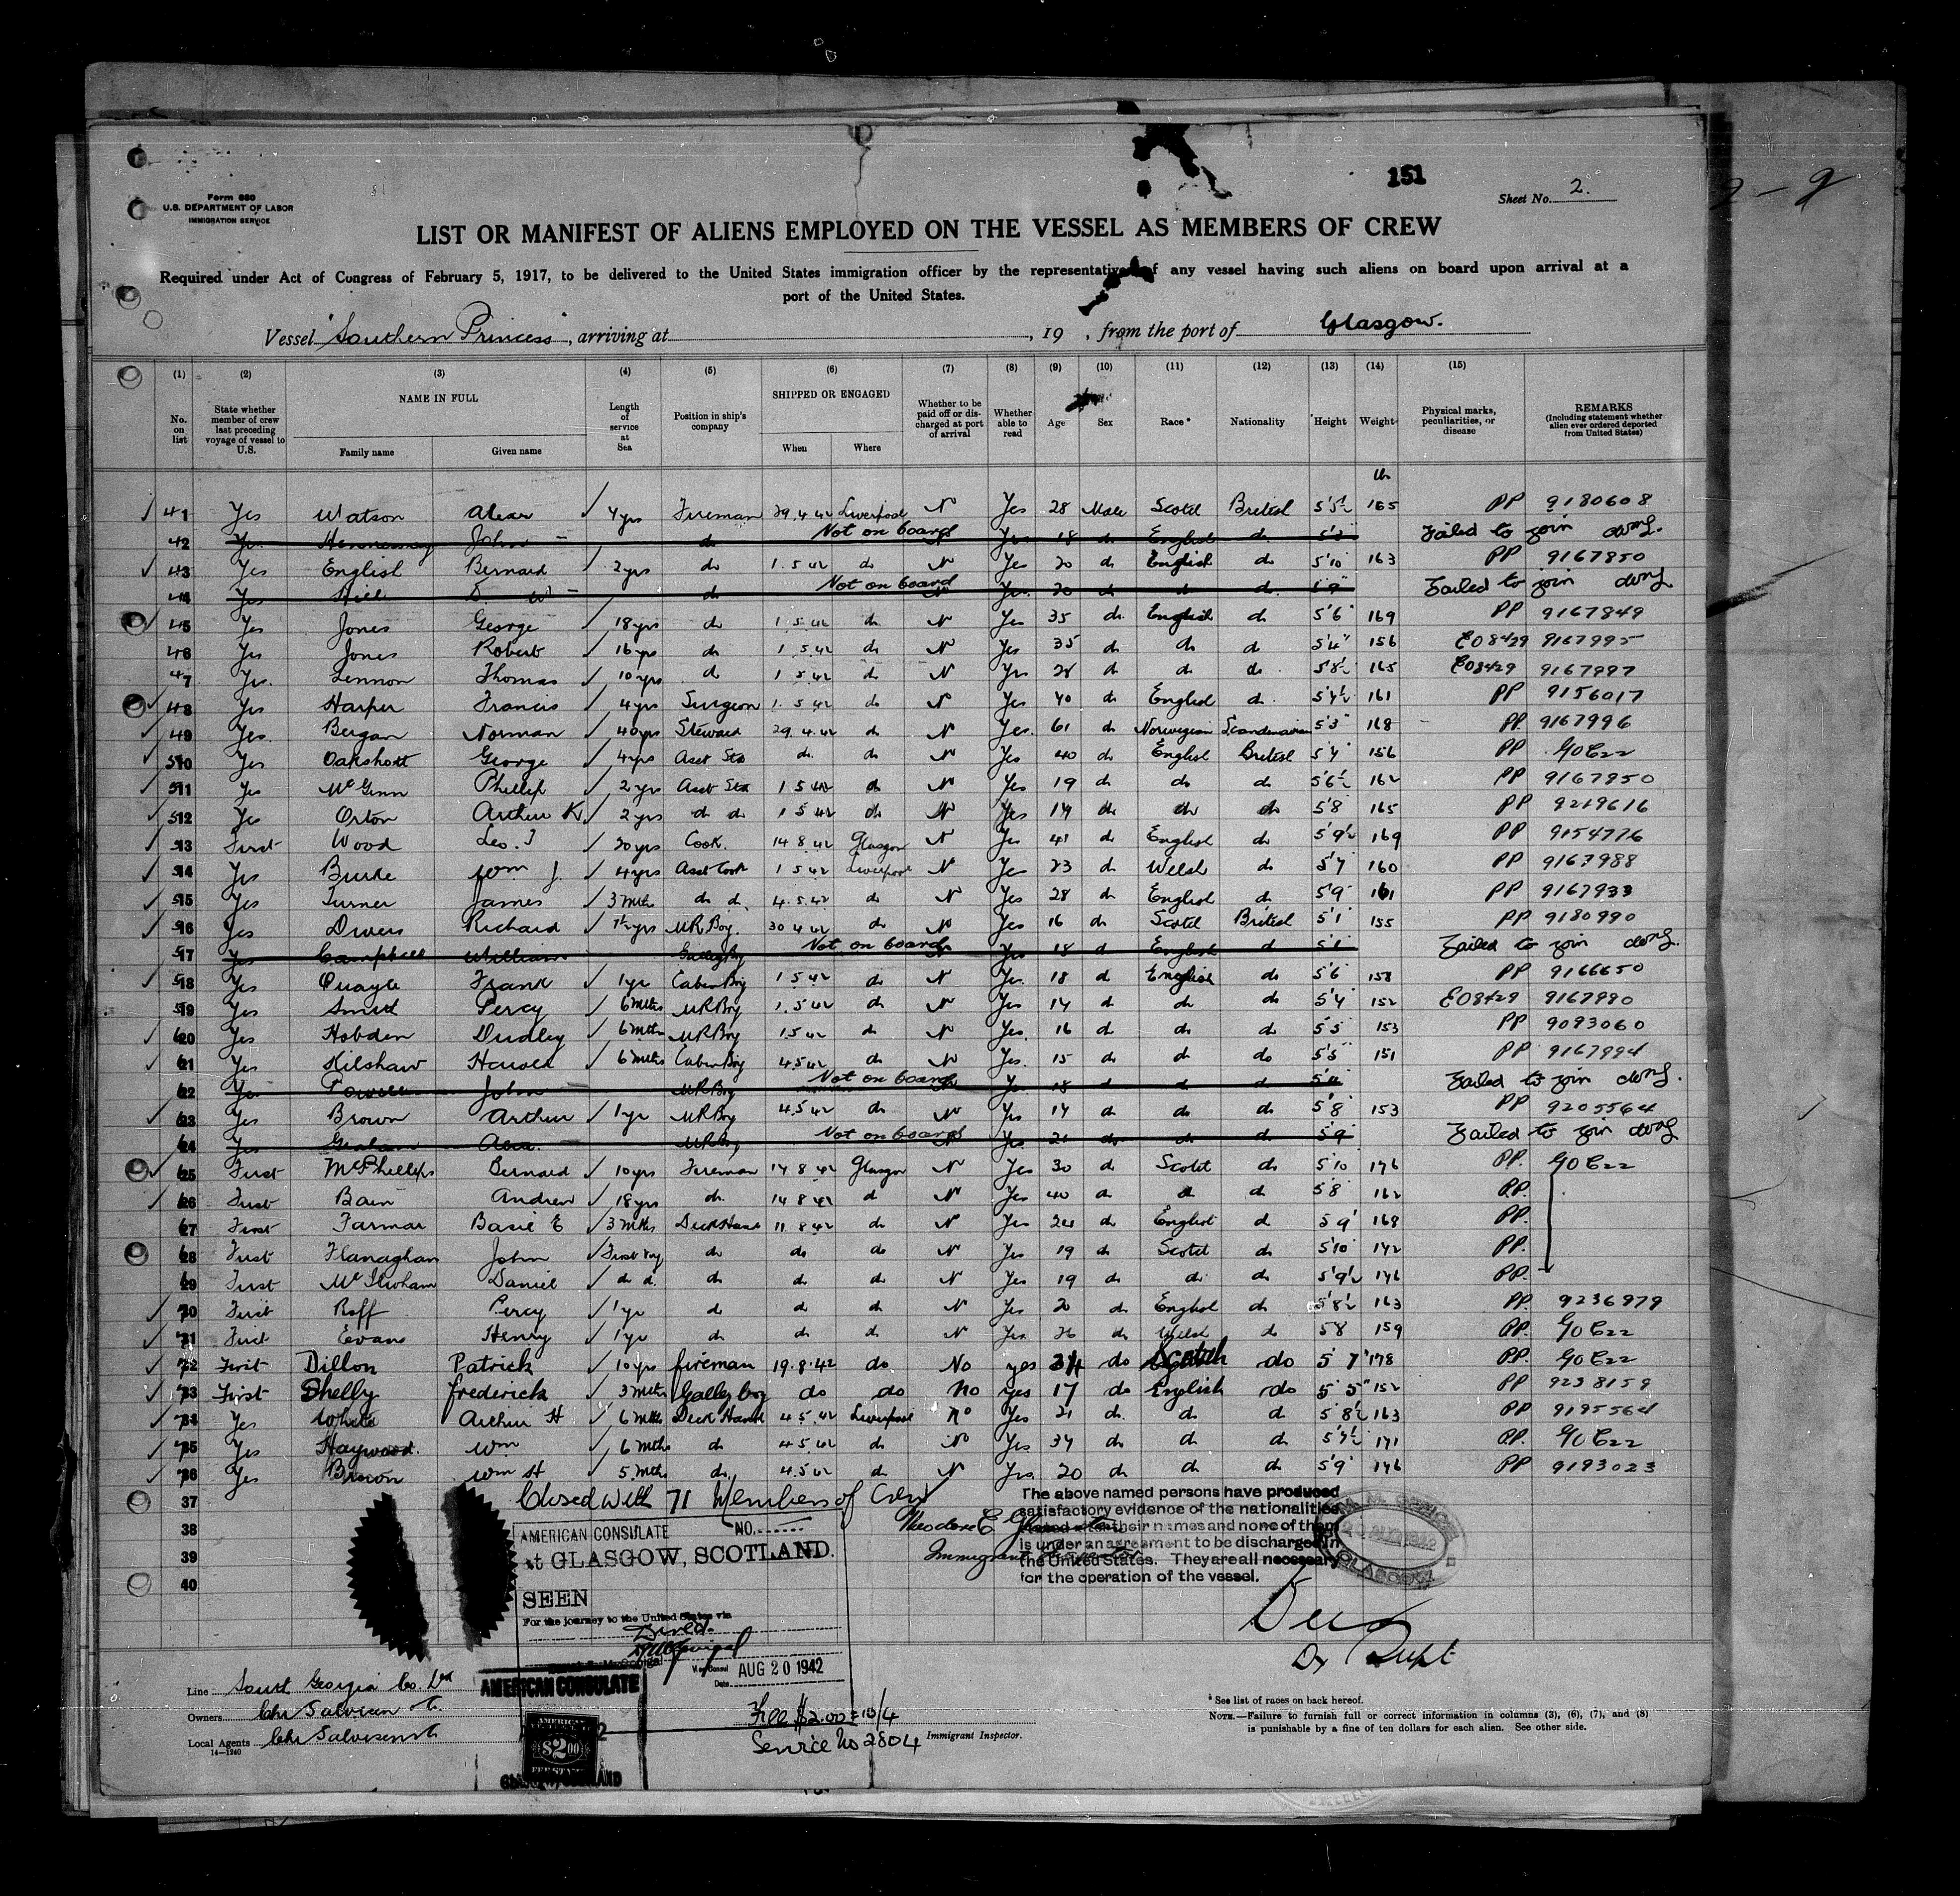 151
Form 680
U.S. DEPARTMENT OF LABOR
IMMIGRATION SERVICE
Sheet No. 2.
LIST OR MANIFEST OF ALIENS EMPLOYED ON THE VESSEL AS MEMBERS OF CREW
Required under Act of Congress of February 5, 1917, to be delivered to the United States immigration officer by the representative of any vessel having such aliens on board upon arrival at a
port of the United States.
Vessel "Southern Princess", arriving at , 19 , from the port of Glasgow.
(1) (2) (3) (4) (5) (6) (7) (8) (9) (10) (11) (12) (13) (14) (15)
No. on list State whether member of crew last preceding voyage of vessel to U.S. NAME IN FULL Family name Given name Length of service at Sea Position in ship's company SHIPPED OR ENGAGED When Where Whether to be paid off or discharged at port of arrival Whether able to read Age Sex Race* Nationality Height Weight Physical marks, peculiarities, or disease REMARKS (Including statement whether alien ever ordered deported from United States)
41 Yes Watson Alexr 4 yrs Fireman 29.4.42 Liverpool N Yes 28 Male Scotch British 5'5½ 165 PP 9180608
42 Yes Hennessey John do Not on board Yes 18 do English do 5'3" Failed to join
43 Yes English Bernard 2 yrs do 1.5.42 do N Yes 20 do English do 5'10 163 PP 9167850
44 Yes Hill do Not on board Yes 20 do do do 5'9" Failed to join
45 Yes Jones George 18 yrs do 1.5.42 do N Yes 35 do English do 5'6" 169 PP 9167849
46 Yes Jones Robert 16 yrs do 1.5.42 do N Yes 35 do do do 5'4" 156 E08429 9167995
47 Yes Lennon Thomas 10 yrs do 1.5.42 do N Yes 28 do do do 5'8½ 165 E08429 9167997
48 Yes Harper Francis 4 yrs Surgeon 1.5.42 do N Yes 40 do English do 5'7½ 161 PP 9156017
49 Yes Bergan Norman 40 yrs Steward 29.4.42 do N Yes 61 do Norwegian Scandinavian 5'3" 168 PP 9167996
50 Yes Oakshott George 4 yrs Asst Std do do N Yes 40 do English British 5'7" 156 PP
51 Yes McGinn Phillip 2 yrs Asst Std 1.5.42 do N Yes 19 do do do 5'6½ 162 PP 9167950
52 Yes Orton Arthur K 2 yrs do do 1.5.42 do N Yes 19 do do do 5'8 165 PP 9219616
53 First Wood Leo. J 20 yrs Cook. 14.8.42 Glasgow N Yes 41 do English do 5'9½ 169 PP 9154776
54 Yes Burke Wm J. 4 yrs Asst Cook 1.5.42 Liverpool N Yes 23 do Welsh do 5'7 160 PP 9167988
55 Yes Turner James 3 Mths do do 4.5.42 do N Yes 28 do English do 5'9 161 PP 9167933
56 Yes Divers Richard 1½ yrs M.R. Boy. 30.4.42 do N Yes 16 do Scotch British 5'1" 155 PP 9180990
57 Yes Campbell William Galley Boy Not on board Yes 18 do English do Failed to join
58 Yes Quayle Frank 1 yr Cabin Boy 1.5.42 do N Yes 18 do English do 5'6 158 PP 9166650
59 Yes Smith Percy 6 Mths M.R. Boy 1.5.42 do N Yes 17 do do do 5'7 152 E08429 9167990
60 Yes Hobden Dudley 6 Mths M.R. Boy 1.5.42 do N Yes 16 do do do 5'5 153 PP 9093060
61 Yes Kilshaw Harold 6 Mths Cabin Boy 4.5.42 do N Yes 15 do do do 5'5 151 PP 9167994
62 Yes Powell John M.R. Boy Not on board Yes 18 do do do Failed to join
63 Yes Brown Arthur 1 yr M.R. Boy 4.5.42 do N Yes 17 do do do 5'8" 153 PP 9205564
64 Yes Graham Alex. M.R. Boy Not on board Yes 21 do do do 5'9" Failed to join
65 First McPhillips Bernard 10 yrs Fireman 17.8.42 Glasgow N Yes 30 do Scotch do 5'10 176 PP.
66 First Bain Andrew 18 yrs do 14.8.42 do N Yes 40 do do do 5'8" 162 PP.
67 First Farmar Basil E 3 Mths Deck Hand 11.8.42 do N Yes 24 do English do 5'9" 168 PP.
68 First Flanaghan John First voy do do do N Yes 19 do Scotch do 5'10 142 PP.
69 First Daniel do do do do do N Yes 19 do do do 5'9½ 146 PP.
70 First Roff Percy 1 yr do do do N Yes 20 do English do 5'8½ 163 PP. 9236979
71 First Evans Henry 1 yr do do do N Yes 26 do Welsh do 5'8 159 PP.
72 First Dillon Patrick 10 yrs fireman 19.8.42 do No yes 34 do Scotch do 5'7" 178 PP.
73 First Shelly frederick 3 Mths Galley boy do do No Yes 17 do English do 5'5" 152 PP 9238159
74 Yes White Arthur H 6 Mths Deck Hand 4.5.42 Liverpool No Yes 21 do do do 5'8½ 163 PP 9195564
75 Yes Haywood. Wm 6 Mths do 4.5.42 do No Yes 37 do do do 5'7½ 171 PP.
76 Yes Brown Wm H 5 Mths do 4.5.42 do N Yes 20 do do do 5'9" 146 PP 9193023
37
38
39
40
Closed with 71 Members of Crew
Theodore E
Immigrant Inspector
The above named persons have produced
satisfactory evidence of the nationalities
placed after their names and none of them
is under an agreement to be discharged in
the United States. They are all necessary
for the operation of the vessel.
GLASGOW
AMERICAN CONSULATE NO.
at GLASGOW, SCOTLAND.
SEEN
For the journey to the United States via
Direct.
Vice Consul
Date AUG 20 1942
AMERICAN CONSULATE
$2.00
Fee $2.00 = 10/4
Service No 2804
Immigrant Inspector.
Line South Georgia Co. Ltd
Owners Chr Salvesen & Co.
Local Agents Chr Salvesen & Co
14—1240
* See list of races on back hereof.
NOTE.—Failure to furnish full or correct information in columns (3), (6), (7), and (8)
is punishable by a fine of ten dollars for each alien. See other side.